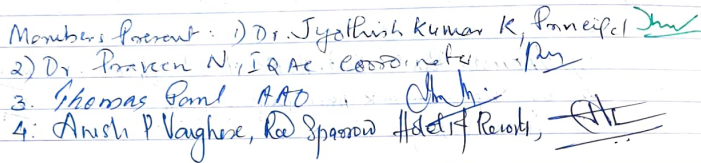 Members Present: 1) Dr. Jyothish Kumar K, Principal
2) Dr Praveen N, IQAC Coordinator
3. Thomas Paul AAO
4: Anish P Varghese, Red Sparrow Hotels & Resorts,